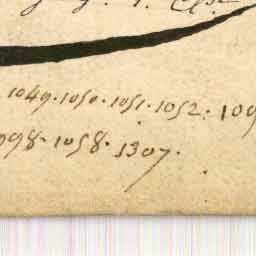 1049. 1050. 1051. 1052. 109
098. 1058. 1307.